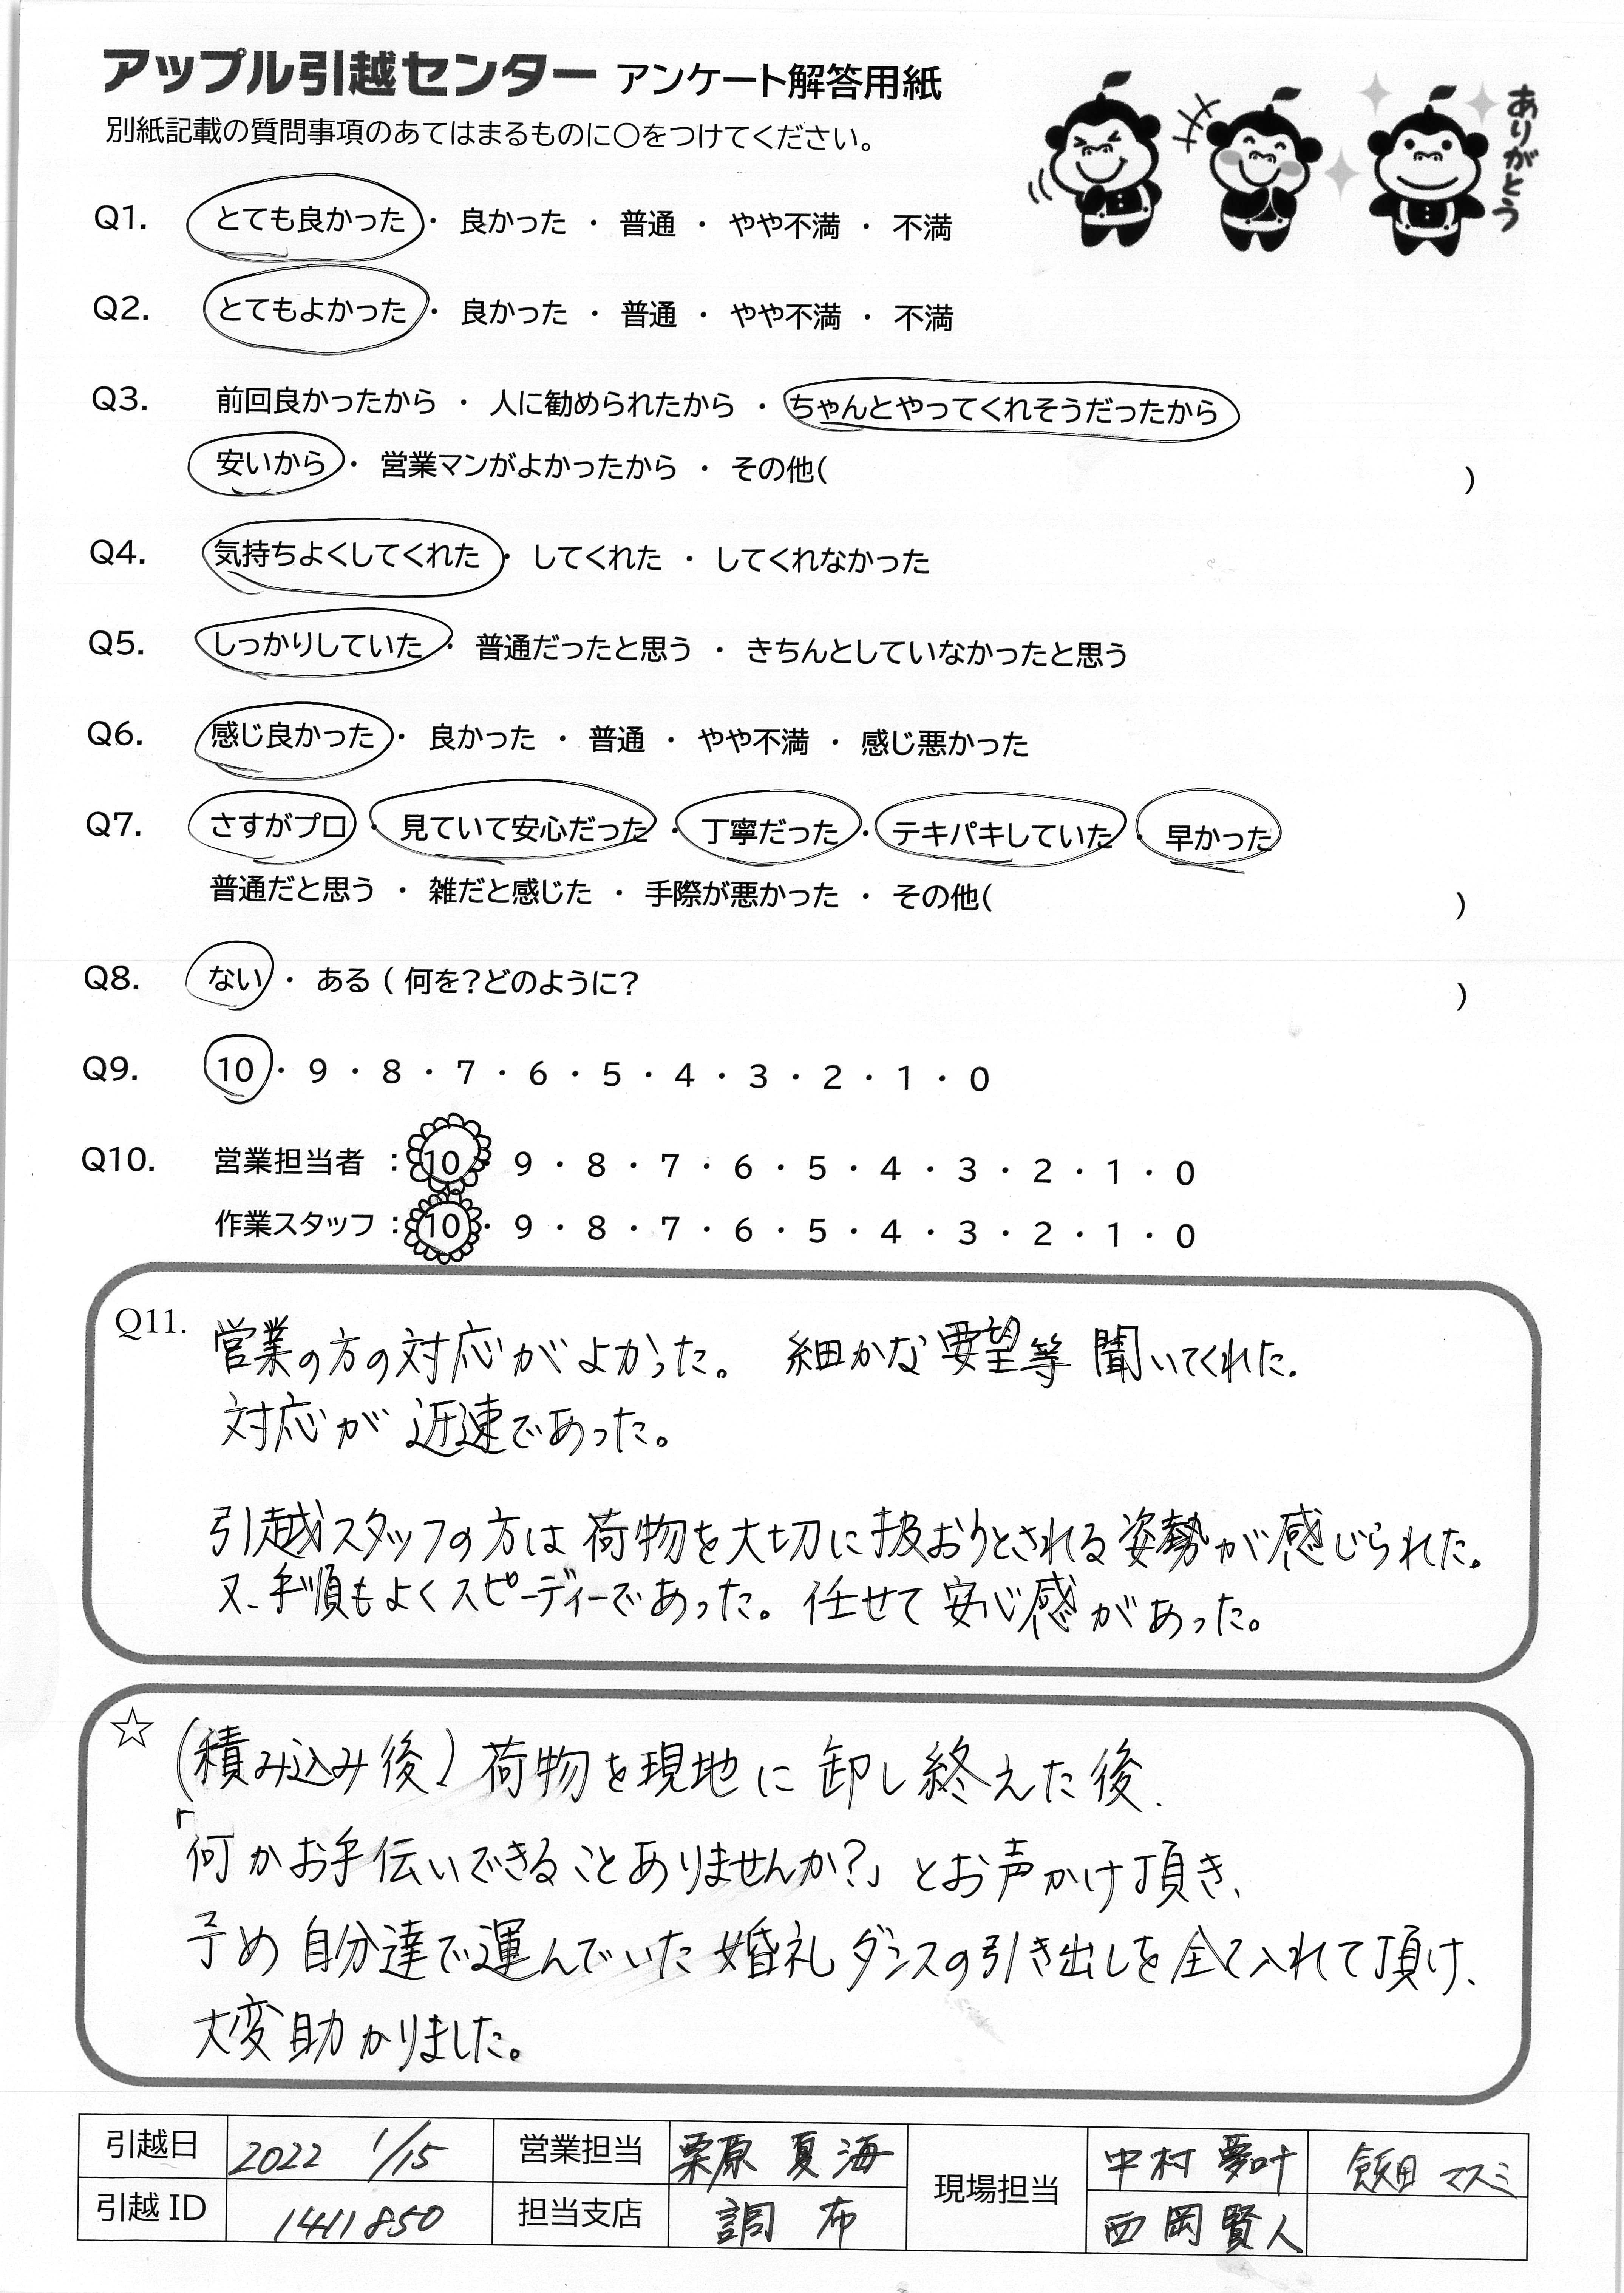 アップル引越センター アンケート解答用紙
別紙記載の質問事項のあてはまるものに○をつけてください。
ありがとう
Q1. とても良かった ・ 良かった ・ 普通 ・ やや不満 ・ 不満
Q2. とてもよかった ・ 良かった ・ 普通 ・ やや不満 ・ 不満
Q3. 前回良かったから ・ 人に勧められたから ・ ちゃんとやってくれそうだったから
安いから ・ 営業マンがよかったから ・ その他( )
Q4. 気持ちよくしてくれた ・ してくれた ・ してくれなかった
Q5. しっかりしていた ・ 普通だったと思う ・ きちんとしていなかったと思う
Q6. 感じ良かった ・ 良かった ・ 普通 ・ やや不満 ・ 感じ悪かった
Q7. さすがプロ ・ 見ていて安心だった ・ 丁寧だった ・ テキパキしていた ・ 早かった
普通だと思う ・ 雑だと感じた ・ 手際が悪かった ・ その他( )
Q8. ない ・ ある ( 何を?どのように? )
Q9. 10 ・ 9 ・ 8 ・ 7 ・ 6 ・ 5 ・ 4 ・ 3 ・ 2 ・ 1 ・ 0
Q10. 営業担当者 : 10 ・ 9 ・ 8 ・ 7 ・ 6 ・ 5 ・ 4 ・ 3 ・ 2 ・ 1 ・ 0
作業スタッフ : 10 ・ 9 ・ 8 ・ 7 ・ 6 ・ 5 ・ 4 ・ 3 ・ 2 ・ 1 ・ 0
Q11. 営業の方の対応がよかった。 細かな要望等 聞いてくれた.
対応が 迅速であった。
引越スタッフの方は 荷物を大切に扱おうとされる姿勢が感じられた。
又、手順もよくスピーディーであった。任せて 安心感があった。
☆ (積み込み後) 荷物を現地に 卸し終えた後、
「何かお手伝いできることありませんか?」とお声かけ頂き、
予め 自分達で運んでいた 婚礼ダンスの引き出しを 全て入れて頂け、
大変助かりました。
引越日 2022 1/15 営業担当 栗原 夏海 現場担当 中村 夢叶 飯田 マスミ
引越 ID 1411850 担当支店 調布 西岡 賢人